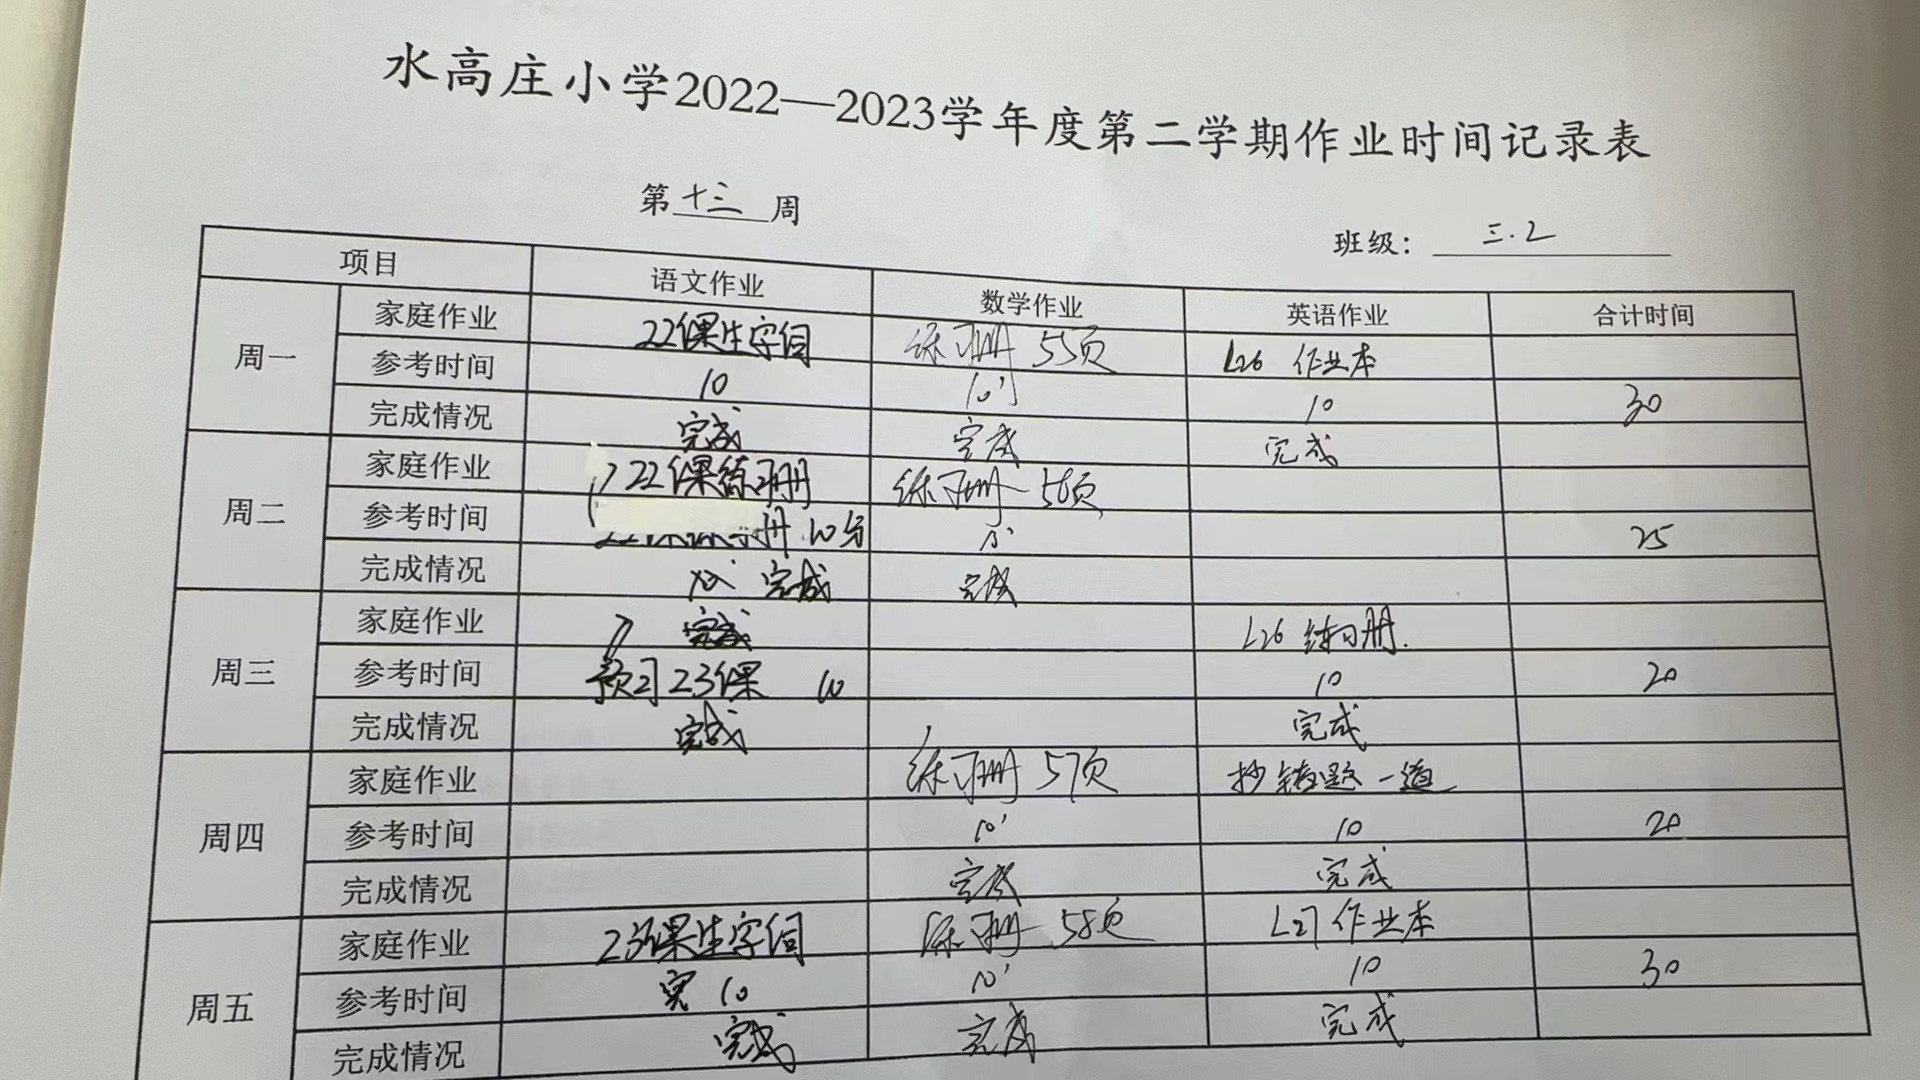 水高庄小学2022—2023学年度第二学期作业时间记录表
第十三周
班级：三.2
项目 语文作业 数学作业 英语作业 合计时间
周一
家庭作业 22课生字词 练习册 55页 L26 作业本
参考时间 10 10' 10 30
完成情况 完成 完成 完成
周二
家庭作业 22课练习册 练习册 56页
参考时间 册 10分 25
完成情况 完成 完成
周三
家庭作业 L26 练习册.
参考时间 预习23课 10 10 20
完成情况 完成 完成
周四
家庭作业 练习册 57页 抄错题一道
参考时间 10' 10 20
完成情况 完成 完成
周五
家庭作业 23课生字词 练习册 58页 L27 作业本
参考时间 10 10' 10 30
完成情况 完成 完成 完成